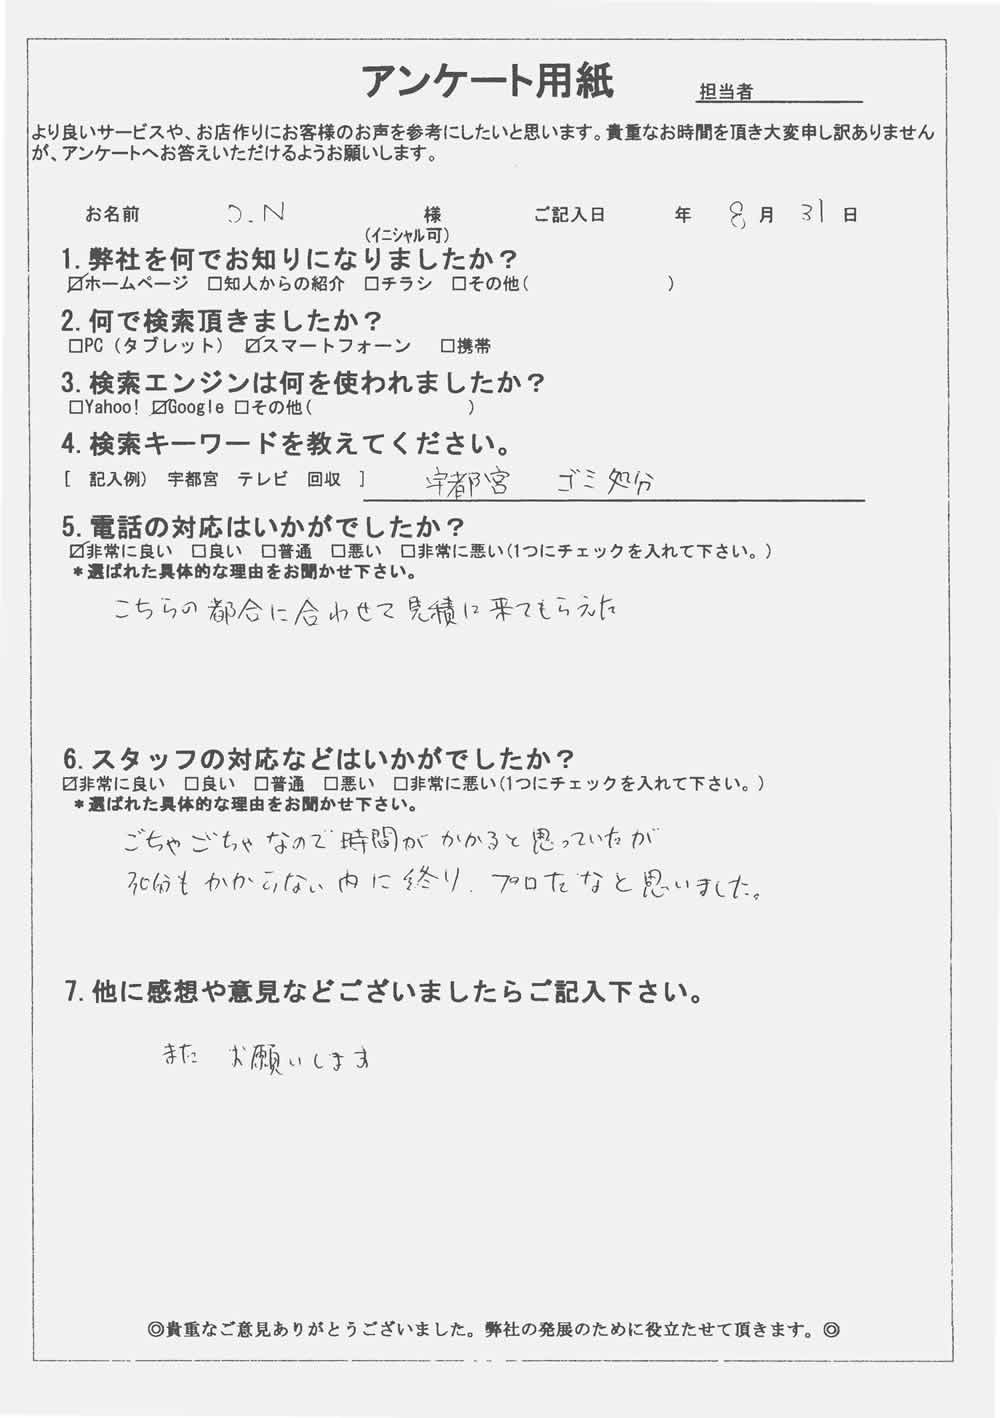 アンケート用紙
担当者
より良いサービスや、お店作りにお客様のお声を参考にしたいと思います。貴重なお時間を頂き大変申し訳ありません
が、アンケートへお答えいただけるようお願いします。
お名前 .N 様 ご記入日 年 8月 31日
(イニシャル可)
1.弊社を何でお知りになりましたか?
☑ホームページ □知人からの紹介 □チラシ □その他( )
2.何で検索頂きましたか?
□PC(タブレット) ☑スマートフォーン □携帯
3.検索エンジンは何を使われましたか?
□Yahoo! ☑Google □その他( )
4.検索キーワードを教えてください。
[ 記入例) 宇都宮 テレビ 回収 ] 宇都宮 ゴミ処分
5.電話の対応はいかがでしたか?
☑非常に良い □良い □普通 □悪い □非常に悪い(1つにチェックを入れて下さい。)
*選ばれた具体的な理由をお聞かせ下さい。
こちらの都合に合わせて見積に来てもらえた
6.スタッフの対応などはいかがでしたか?
☑非常に良い □良い □普通 □悪い □非常に悪い(1つにチェックを入れて下さい。)
*選ばれた具体的な理由をお聞かせ下さい。
ごちゃごちゃなので時間がかかると思っていたが
30分もかからない内に終り、プロだなと思いました。
7.他に感想や意見などございましたらご記入下さい。
また お願いします
◎貴重なご意見ありがとうございました。弊社の発展のために役立たせて頂きます。◎